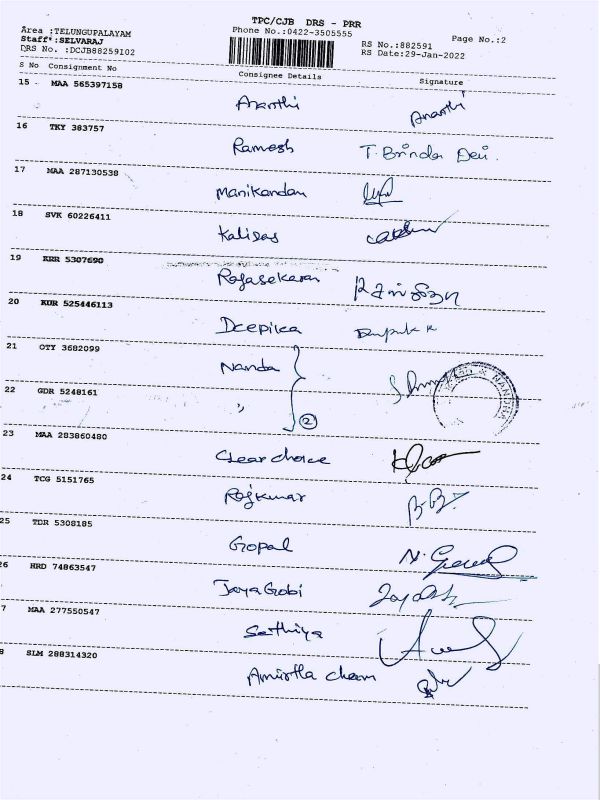 TPC/CJB DRS - PRR
Area :TELUNGUPALAYAM Phone No.:0422-3505555 Page No.:2
Staff*:SELVARAJ RS No.:882591
DRS No. :DCJB88259102 RS Date:29-Jan-2022
S No Consignment No Consignee Details Signature
15 . MAA 565397158 Ananthi Ananthi
16 TKY 383757 Ramesh T. Brinda Devi.
17 MAA 287130538 Manikandan
18 SVK 60226411 Kalidas
19 KRR 5307690 Rajasekaran
20 KUR 525446113 Deepika
21 OTY 3682099 Nanda
22 GDR 5248161 " 2
23 MAA 283860480 Clear choice
24 TCG 5151765 Rajkumar
25 TDR 5308185 Gopal
26 HRD 74863547 JayaGobi
7 MAA 277550547 Sathiya
8 SLM 288314320 Amirtha